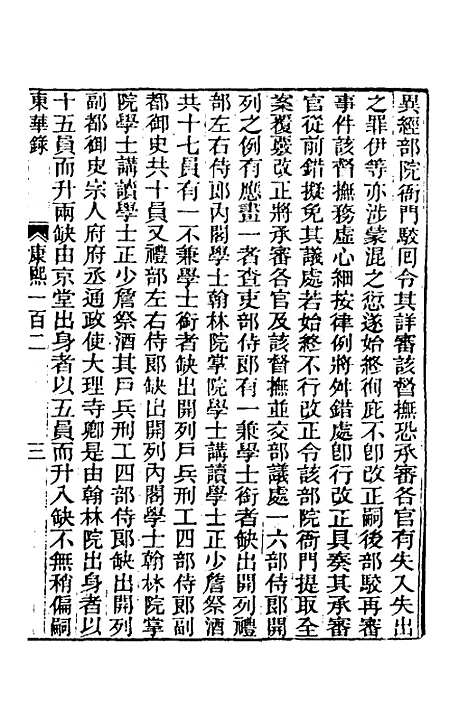 異經部院衙門駁回令其詳審該督撫恐承審各官有失入失出
之罪伊等亦涉蒙混之愆遂始終徇庇不卽改正嗣後部駁再審
事件該督撫務虛心細按律例將舛錯處卽行改正具奏其承審
官從前錯擬免其議處若始終不行改正令該部院衙門提取全
案覆覈改正將承審各官及該督撫並交部議處一六部侍郞開
列之例有應畫一者查吏部侍郞有一兼學士銜者缺出開列禮
部左右侍郞內閣學士翰林院掌院學士講讀學士正少詹祭酒
共十七員有一不兼學士銜者缺出開列戶兵刑工四部侍郞副
都御史共十員又禮部左右侍郞缺出開列內閣學士翰林院掌
院學士講讀學士正少詹祭酒其戶兵刑工四部侍郞缺出開列
副都御史宗人府府丞通政使大理寺卿是由翰林院出身者以
十五員而升兩缺由京堂出身者以五員而升八缺不無稍偏嗣
東華錄 康熙一百二 三